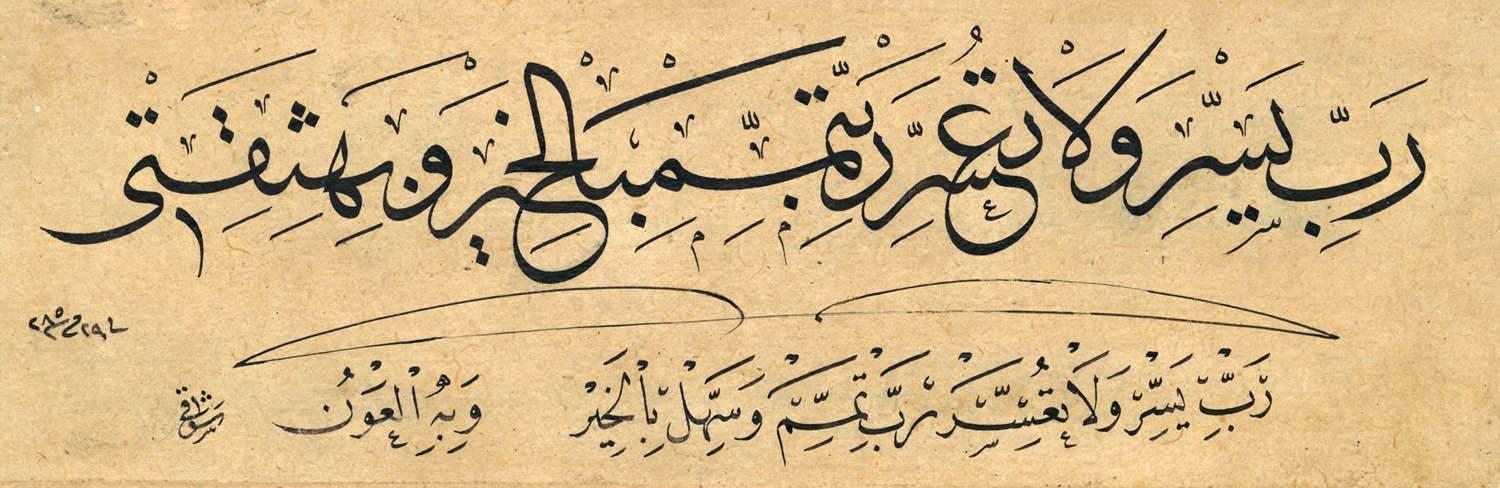 رَبِّ يَسِّرْ وَلَا تُعَسِّرْ رَبِّ تَمِّمْ بِالْخَيْرِ وَبِهِ ثِقَتِى
رَبِّ يَسِّرْ وَلَا تُعَسِّرْ رَبِّ تَمِّمْ وَسَهِّلْ بِالْخَيْرِ وَبِهِ الْعَوْنُ